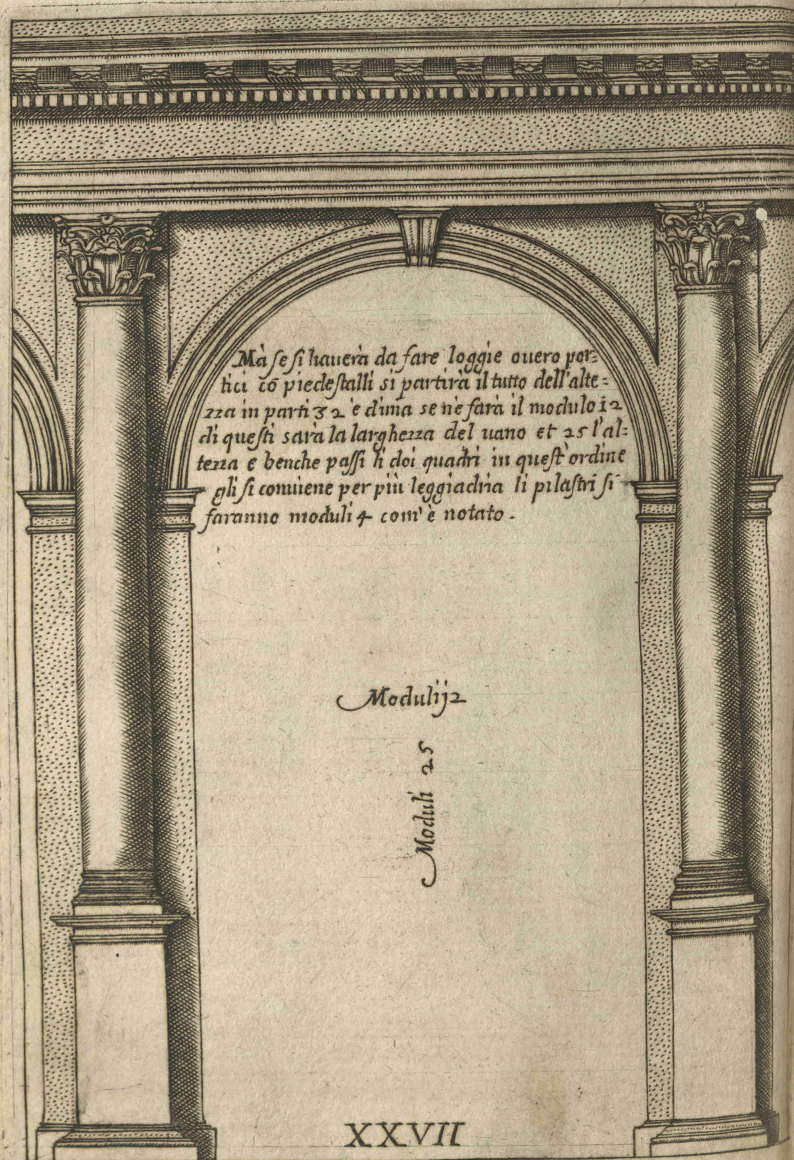 Mà se si hauerà da fare loggie ouero por=
tici cō piedestalli si partirà il tutto dell'alte=
zza in parti 32 e d'una se ne farà il modulo 12
di questi sarà la larghezza del uano et 25 l'al=
tezza e benche passi li doi quadri in quest'ordine
gli si conuiene per più leggiadria li pilastri si
faranno moduli 4 com'è notato.
Moduli 12
Moduli 25
XXVII